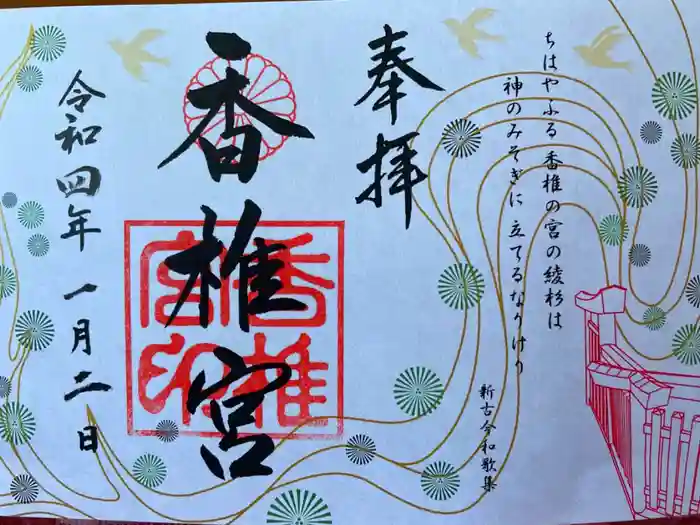 ちはやふる 香椎の宮の綾杉は
神のみそぎに 立てるなりけり
新古今和歌集
奉拝
香椎宮
香椎宮印
令和四年 一月二日